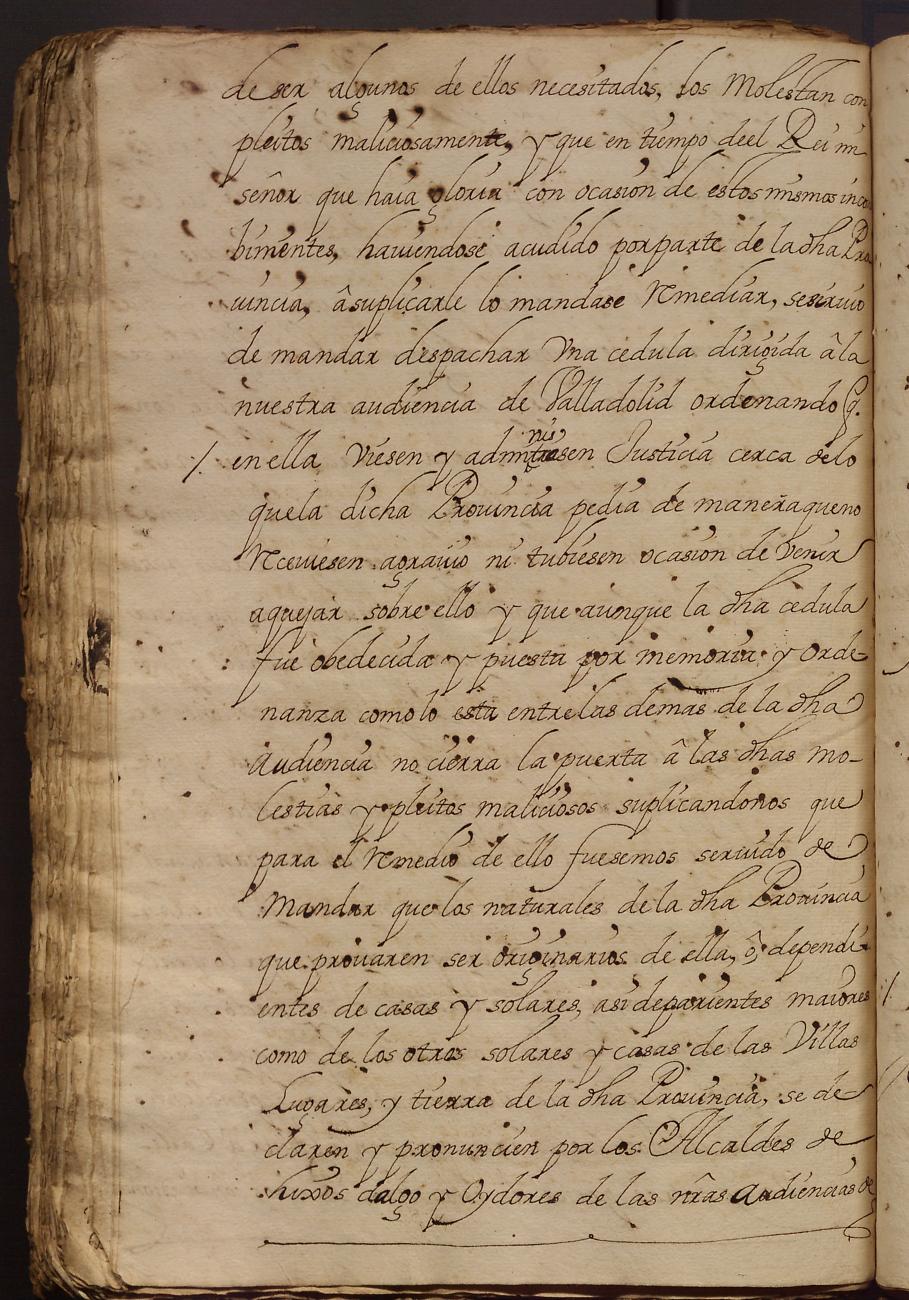 de ser algunos de ellos necesitados, los Molestan con
pleitos maliciosamente, y que en tiempo deel Rei mi
señor que haia gloria con ocasion de estos mismos incon
bimentes, hauiendose acudido por parte de la dha Pro
uincia, â suplicarle lo mandase Remediar, se siruio
de mandar despachar Vna cedula dirigida â la
nuestra audiencia de Valladolid ordenando q.
/. en ella Viesen y adminis trasen Justicia cerca de lo
que la dicha Prouincia pedia de manera que no
Receuiesen agrauio ni tubiesen ocasion de Venir
aquejar sobre ello y que aunque la dha cedula
fue obedecida y puesta por memoria y Orde-
nanza como lo esta entre las demas de la dha
Audiencia no cierra la puerta â las dhas mo-
lestias y pleitos maliciosos suplicandonos que
para el Remedio de ello fuesemos seruido de
Mandar que los naturales de la dha Prouincia
que prouaren ser originarios de ella, ô, dependi
entes de casas y solares, asi de parientes maiores
como de los otros solares y casas de las Villas
Lugares, y tierra de la dha Prouincia, se de
claren y pronuncien por los Alcaldes de
hixos dalgo y Oydores de las nras Audiencias de